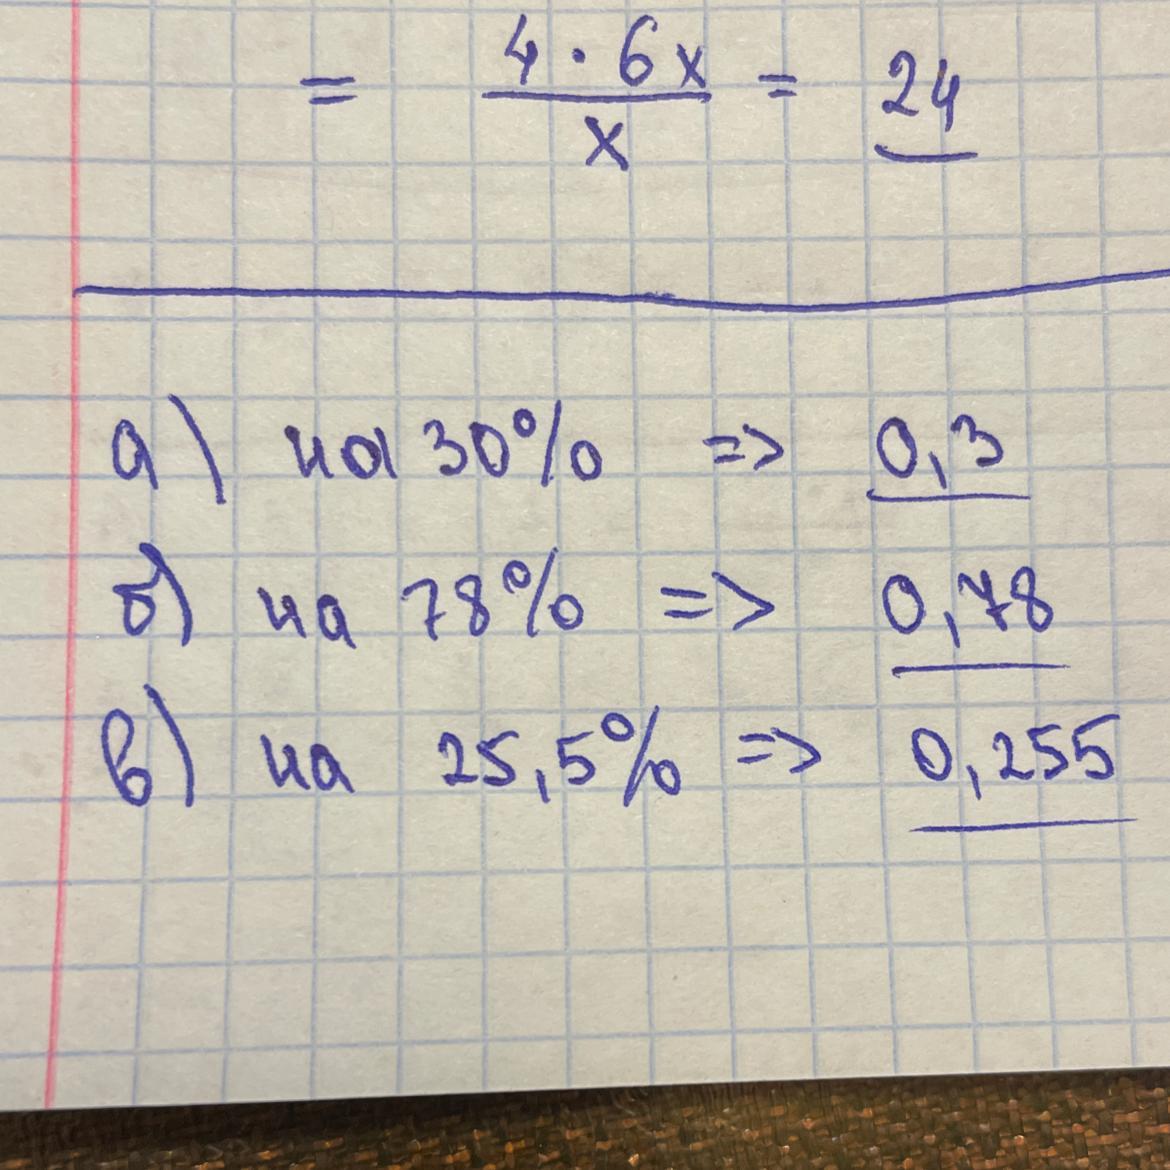 = 4 · 6x / x = 24
а) на 30% => 0,3
б) на 78% => 0,78
в) на 25,5% => 0,255